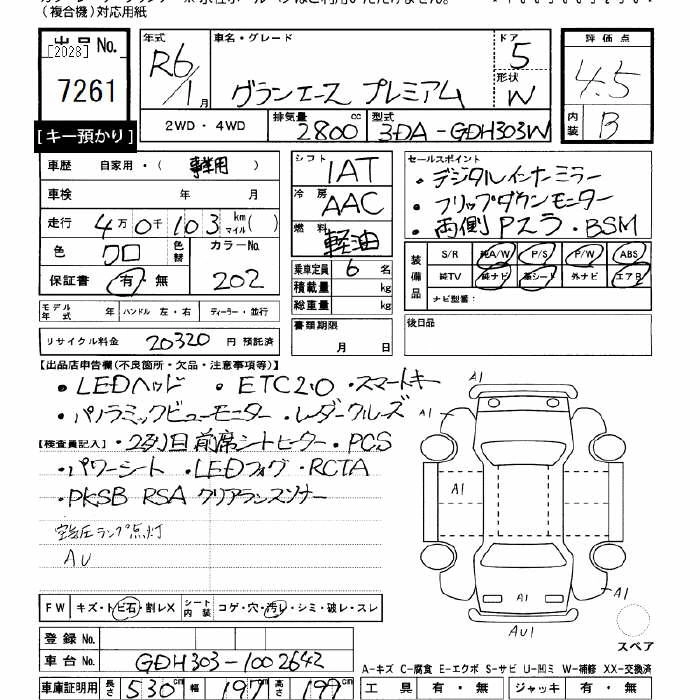 (複合機)対応用紙
出品No. 年式 車名・グレード ドア 評価点
[2028] R6/1月 グランエース プレミアム 5 4.5
7261 形状 W
2WD・4WD 排気量 2800cc 型式 3DA-GDH303W 内装 B
[キー預かり]
車歴 自家用・(事業用) シフト IAT セールスポイント
車検 年 月 冷房 AAC ・デジタルインナーミラー
走行 4万0千103 km マイル( ) 燃料 軽油 ・フリップダウンモニター
・両側Pスラ・BSM
色 クロ 色替 カラーNo. 202
保証書 有・無
乗車定員 6名
積載量 kg
総重量 kg
装備品 S/R 純A/W P/S P/W ABS
純TV 純ナビ 革シート 外ナビ エアB
ナビ型番:
モデル年式 年 ハンドル 左・右 ディーラー・並行
書類期限 月 日
後日品
リサイクル料金 20320 円 預託済
【出品店申告欄(不良箇所・欠品・注意事項等)】
・LEDヘッド ・ETC2.0 ・スマートキー
・パノラミックビューモニター ・レーダークルーズ
【検査員記入】・2列目前席シートヒーター・PCS
・パワーシート ・LEDフォグ・RCTA
・PKSB RSA クリアランスソナー
空気圧ランプ点灯
AU
A1
A1
A1
A1
A1
AU1
スペア
FW キズ・トビ石・割レX シート内装 コゲ・穴・汚レ・シミ・破レ・スレ
登録No.
車台No. GDH303-1002642
A-キズ C-腐食 E-エクボ S-サビ U-凹ミ W-補修 XX-交換済
車庫証明用 長さ 530cm 幅 197cm 高さ 199cm 工具 有・無 ジャッキ 有・無